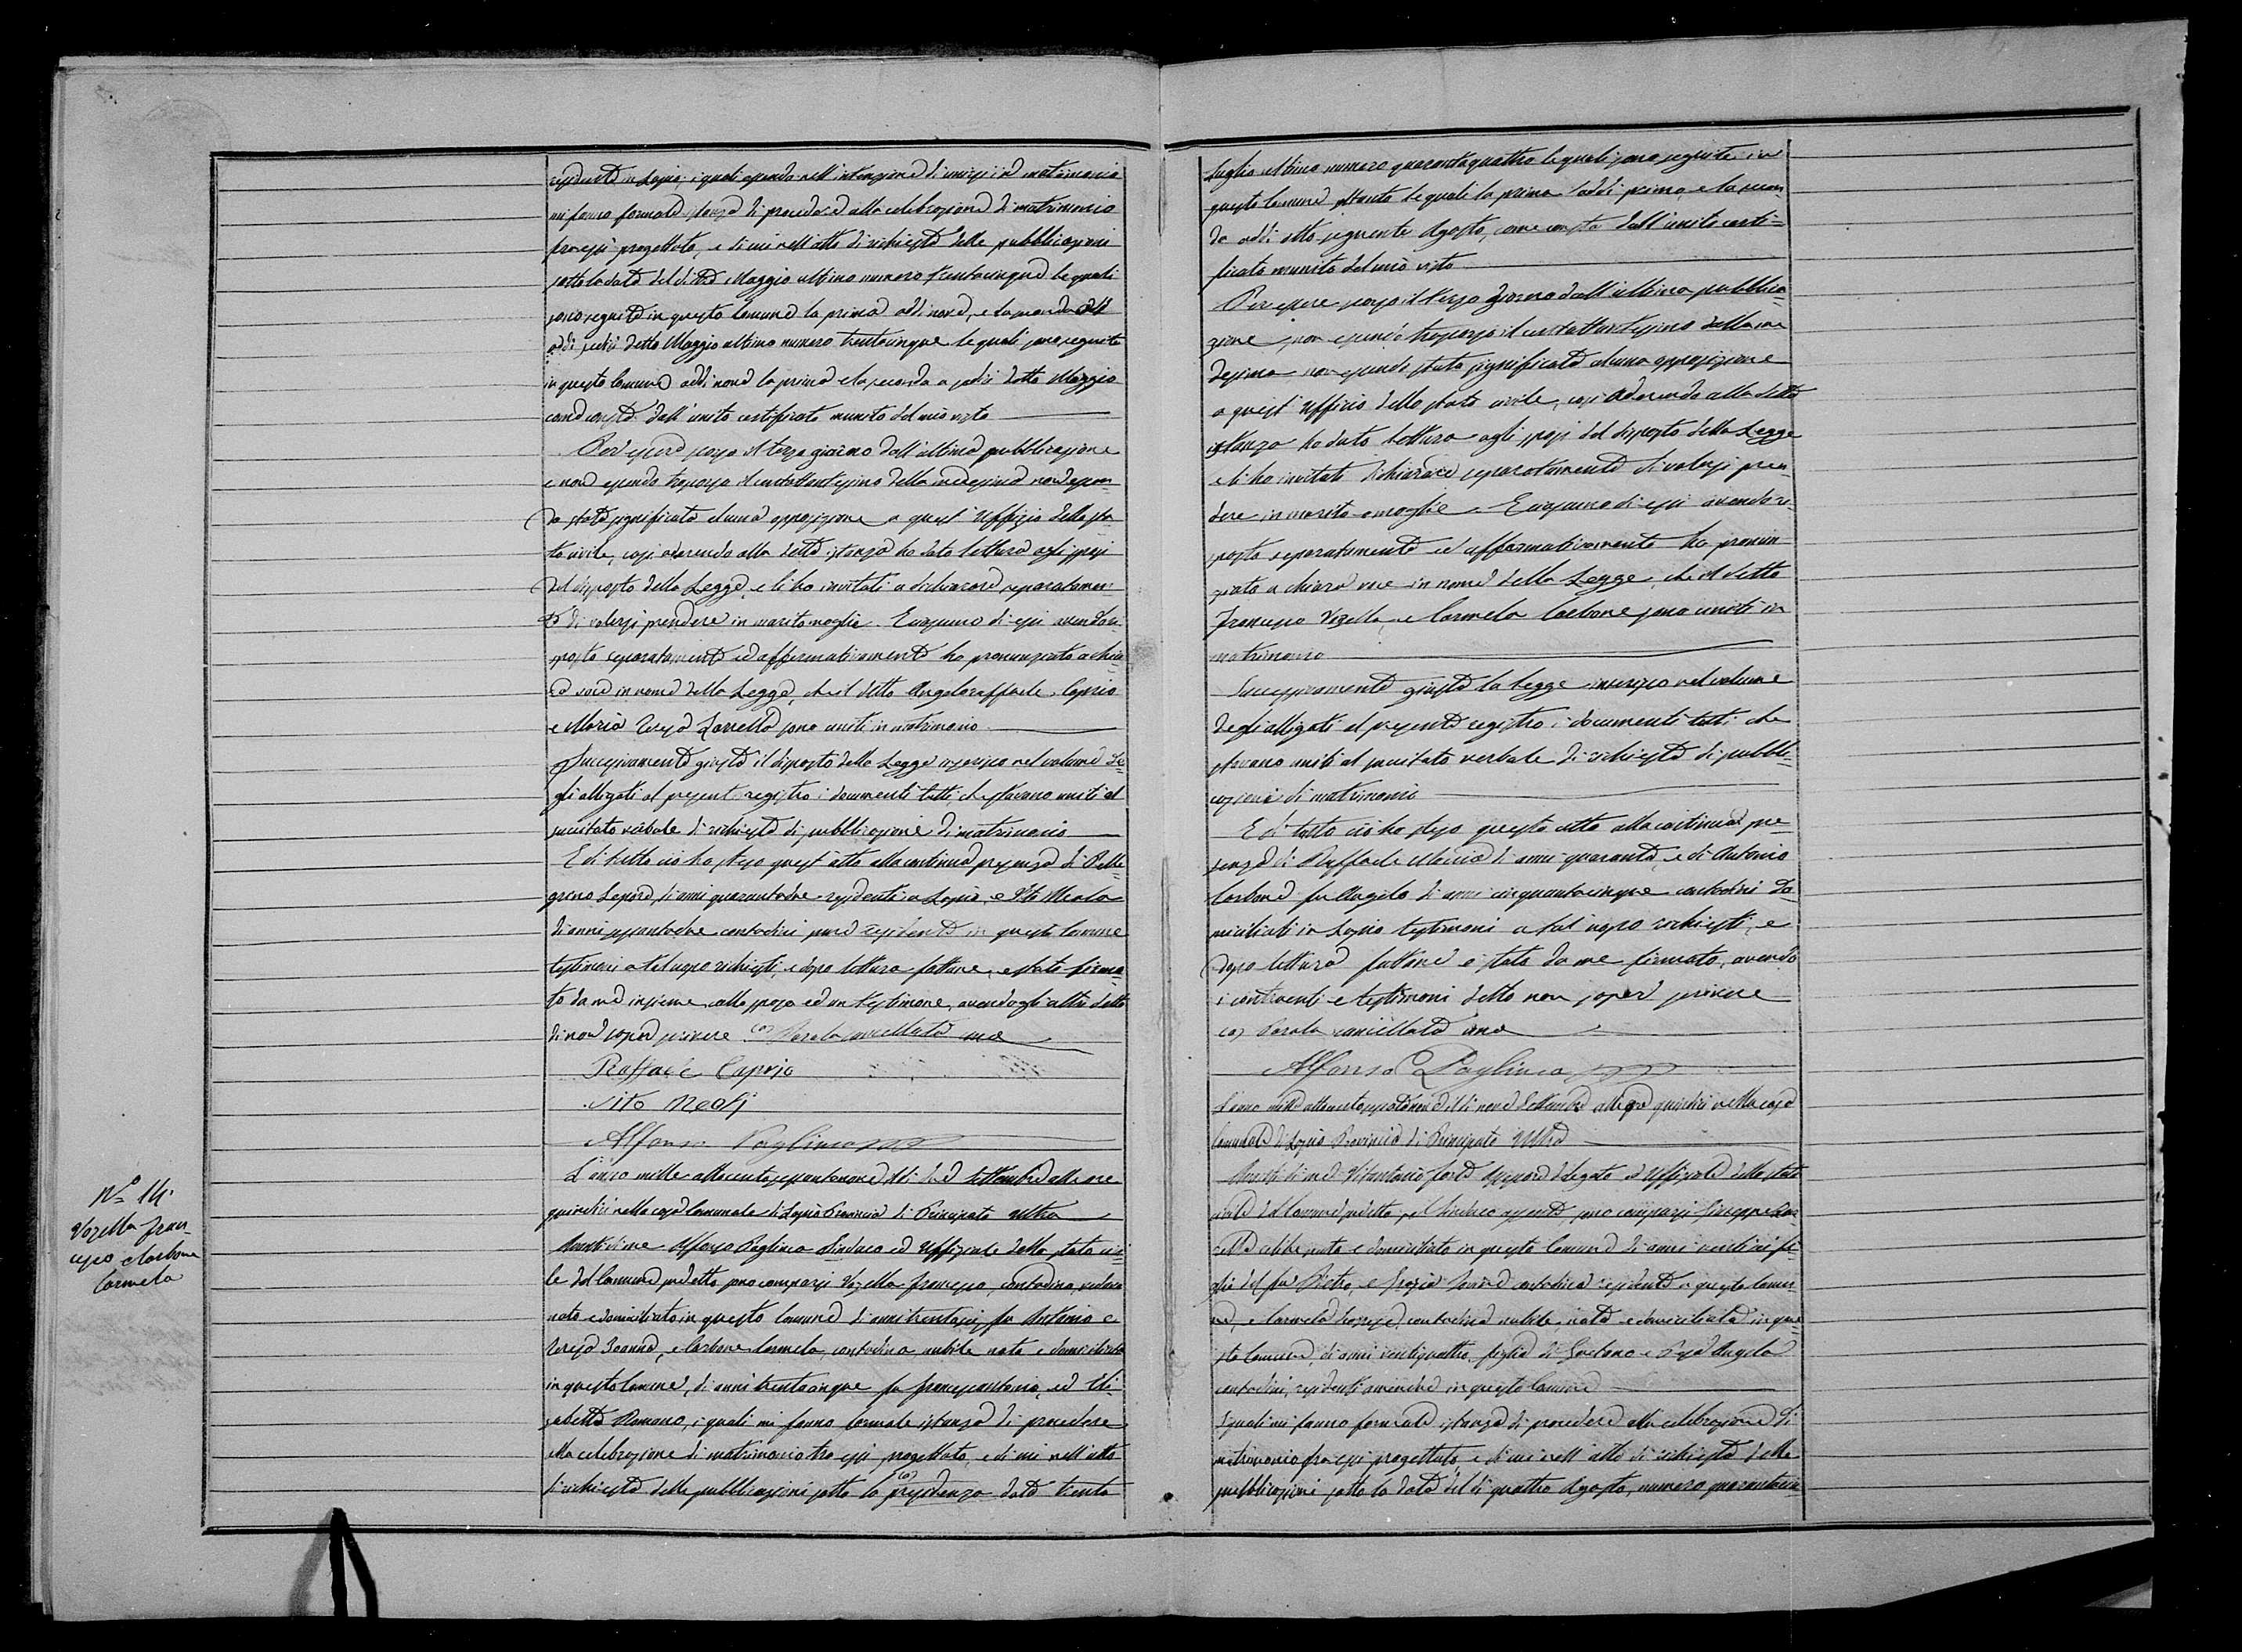 residente in Lapio, i quali essendo nell'intenzione di unirsi in matrimonio
mi fanno formale istanza di procedere alla celebrazione di matrimonio
fra essi progettato, e di cui nell'atto di richiesta delle pubblicazioni
sotto la data del dì tre Maggio ultimo numero trentacinque le quali
sono seguite in questo Comune la prima addì nove, e la seconda
addì sedici detto Maggio ultimo numero trentacinque le quali sono seguite
in questo Comune addì nove la prima e la seconda a sedici detto Maggio
come consta dall'unito certificato munito del mio visto
Per essere scorso il terzo giorno dall'ultima pubblicazione
e non essendo trascorso il centottantesimo della medesima non essen-
do stata significata alcuna opposizione a quest'Uffizio dello sta-
to civile, così aderendo alla detta istanza ho dato lettura agli sposi
del disposto della Legge, e li ho invitati a dichiarare separatamen-
te di volersi prendere in marito moglie. E ciascuno di essi avendo ri-
sposto separatamente ed affermativamente ho pronunziato a chia-
ra voce in nome della Legge, che il detto Angeloraffaele Caprio
e Maria Teresa sono uniti in matrimonio
Successivamente giusta il disposto della Legge inserisco nel volume de-
gli alligati al presente registro i documenti tutti che stavano uniti al
succitato verbale di richiesta di pubblicazione di matrimonio
E di tutto ciò ho steso quest'atto alla continua presenza di Pelle-
grino Lepore, di anni quarantadue residente a Lapio, e Vito Meola
di anni sessantadue contadini pure residente in questo Comune
testimoni a tal uopo richiesti, e dopo lettura fattane, è stato firma-
to da me insieme allo sposo ed un testimone, avendo gli altri detto
di non saper scrivere (a) Parola cancellata una
Raffaele Caprio
Vito Meoli
Alfonso Pagliuca
L'anno mille ottocento sessantanove, il dì tre Settembre alle ore
quindici nella casa Comunale di Lapio Provincia di Principato Ultra
Avanti di me Alfonso Pagliuca Sindaco ed Uffiziale dello stato civi-
le del Comune suddetto, sono comparsi Vozella Francesco, contadino, vedovo
nato e domiciliato in questo Comune di anni trentasei, fu Antonio e
Teresa Ioanna, e Carbone Carmela, contadina nubile nata e domiciliata
in questo Comune, di anni trentacinque fu Francescantonio, ed Eli-
sabetta Romano, i quali mi fanno formale istanza di procedere
alla celebrazione di matrimonio tra essi progettato, e di cui nell'atto
di richiesta delle pubblicazioni sotto la (a) presidenza data trenta
Nº 14.
Vozella Fran-
cesco e Carbone
Carmela
Luglio ultimo numero quarantaquattro le quali sono seguite in
questo Comune le quali la prima addì primo, e la secon-
da addì otto seguente Agosto, come consta dall'unito certi-
ficato munito del mio visto
Per essere scorso il terzo giorno dall'ultima pubblica-
zione, non essendo trascorso il centottantesimo dalla me-
desima non essendo stata significata alcuna opposizione
a quest'Ufficio dello stato civile, così aderendo alla detta
istanza ho dato lettura agli sposi del disposto della Legge
e li ho invitati dichiarare separatamente di volersi pren-
dere in marito e moglie. E ciascuno di essi avendo ri-
sposto separatamente ed affermativamente ho pronun
ziato a chiara voce in nome della Legge, che il detto
Francesco Vozella, e Carmela Carbone sono uniti in
matrimonio
Successivamente giusta la Legge inserisco nel volume
degli alligati al presente registro i documenti tutti che
stavano uniti al succitato verbale di richiesta di pubbli-
cazione di matrimonio
E di tutto ciò ho steso questo atto alla continua pre-
senza di Raffaele di anni quaranta, e di Antonio
Carbone fu Angelo di anni cinquantacinque contadini do-
miciliati in Lapio testimoni a tal uopo richiesti, e
dopo lettura fattane è stato da me firmato, avendo
i contraenti e testimoni detto non saper scrivere
(a) Parola cancellata una
Alfonso Pagliuca
L'anno mille ottocento sessantanove il dì nove Settembre alle ore quindici nella casa
Comunale di Lapio Provincia di Principato Ultra
Avanti di me Vitantonio Forte Assessore delegato ed Uffiziale dello stato
civile del Comune suddetto, pel Sindaco assente, sono comparsi Giuseppe
celibe, nato e domiciliato in questo Comune di anni fi-
glio del fu Pietro, e Grazia contadina residente in questo Comu-
ne, e Carmela contadina nubile nata e domiciliata in que-
sto Comune, di anni ventiquattro, figlia di Gaetano e Rosa
contadini, residenti amendue in questo Comune
I quali mi fanno formale istanza di procedere alla celebrazione di
matrimonio fra essi progettato, e di cui nell'atto di richiesta delle
pubblicazioni sotto la data del dì quattro Agosto, numero